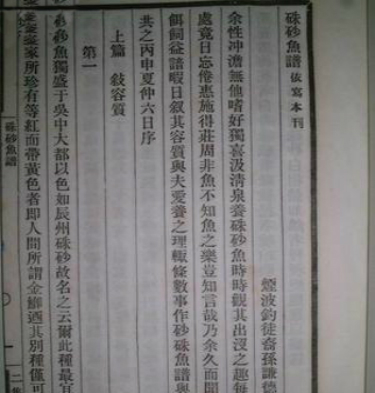 硃砂魚譜 依寫本刊
煙波釣徒裔孫謙德
余性冲澹無他嗜好獨喜汲清泉養硃砂魚時時觀其出沒之趣每
處竟日忘倦惠施得莊周非魚不知魚之樂豈知言哉乃余久而聞
餌飼益諳暇日叙其容質與夫愛養之理輙條數事作硃砂魚譜與
共之丙申夏仲六日序
上篇 敍容質
第一
硃砂魚獨盛于吳中大都以色如辰州硃砂故名之云爾此種最
家所珍有等紅而帶黃色者即人間所謂金鯽迺其別種僅可
硃砂魚譜